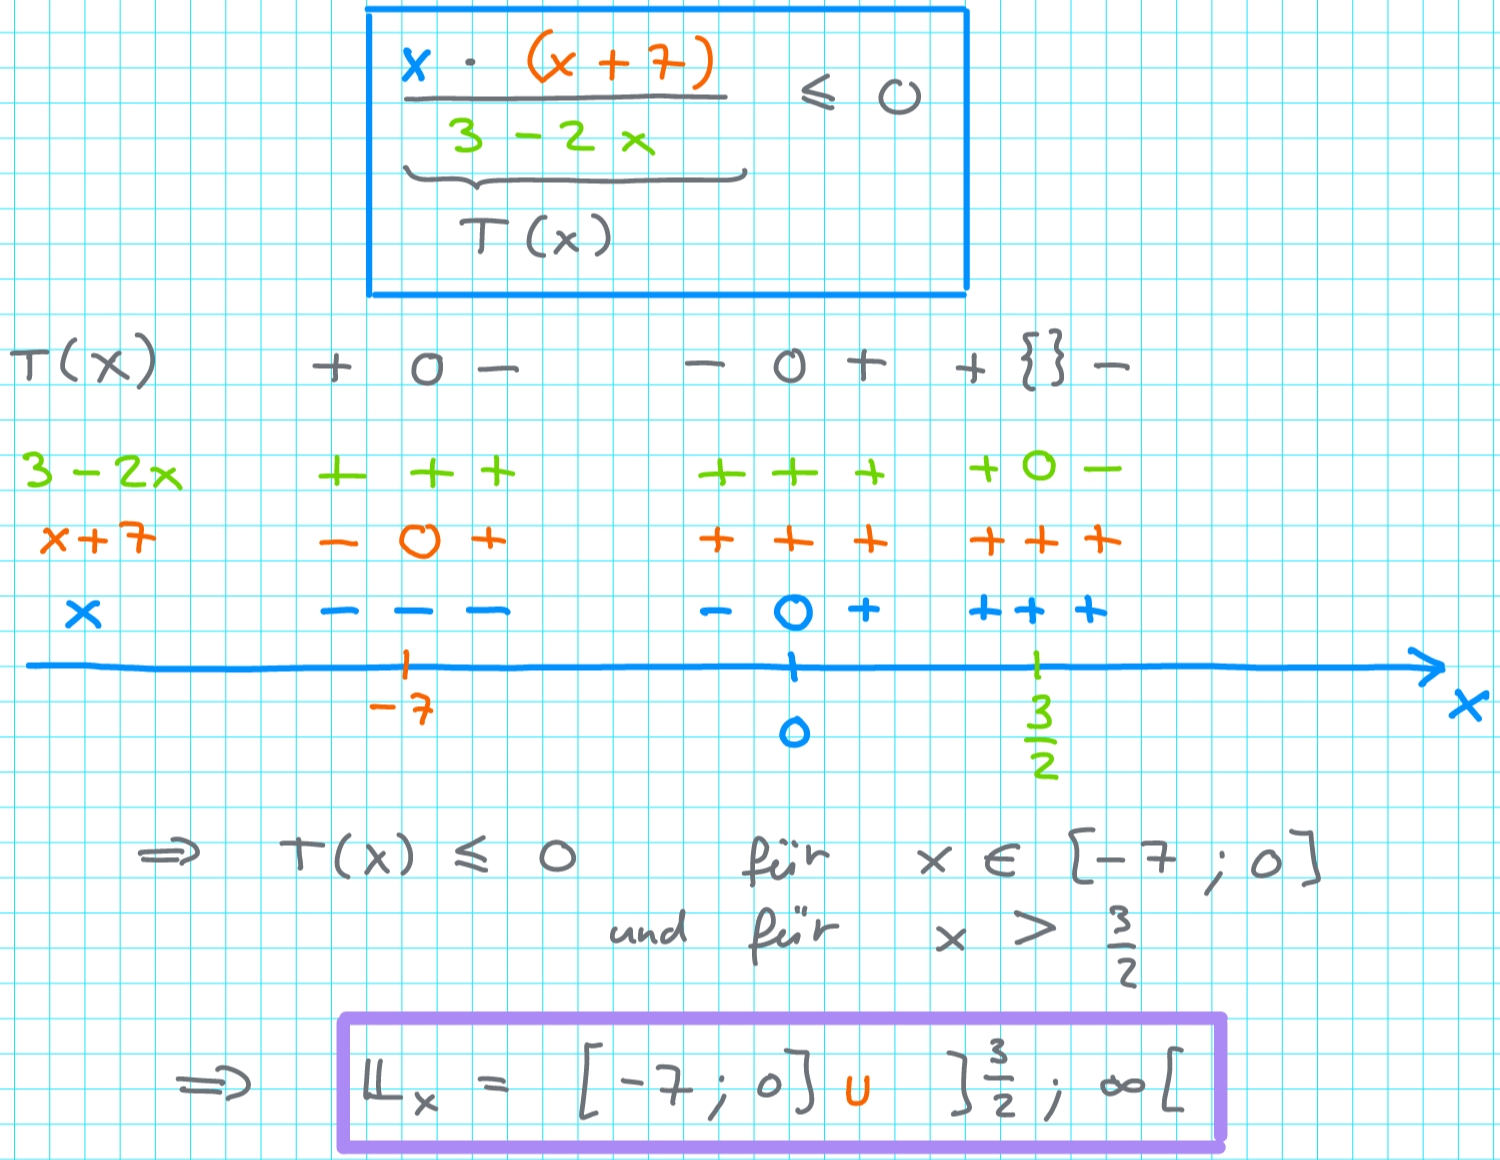 x · (x + 7)
3 - 2x
≤ 0
T(x)
T(x) + 0 - - 0 + + {} -
3 - 2x + + + + + + + 0 -
x + 7 - 0 + + + + + + +
x - - - - 0 + + + +
-7 0 3/2 x
⇒ T(x) ≤ 0 für x ∈ [-7 ; 0]
und für x > 3/2
⇒ 𝕃ₓ = [-7 ; 0] ∪ ]3/2 ; ∞[